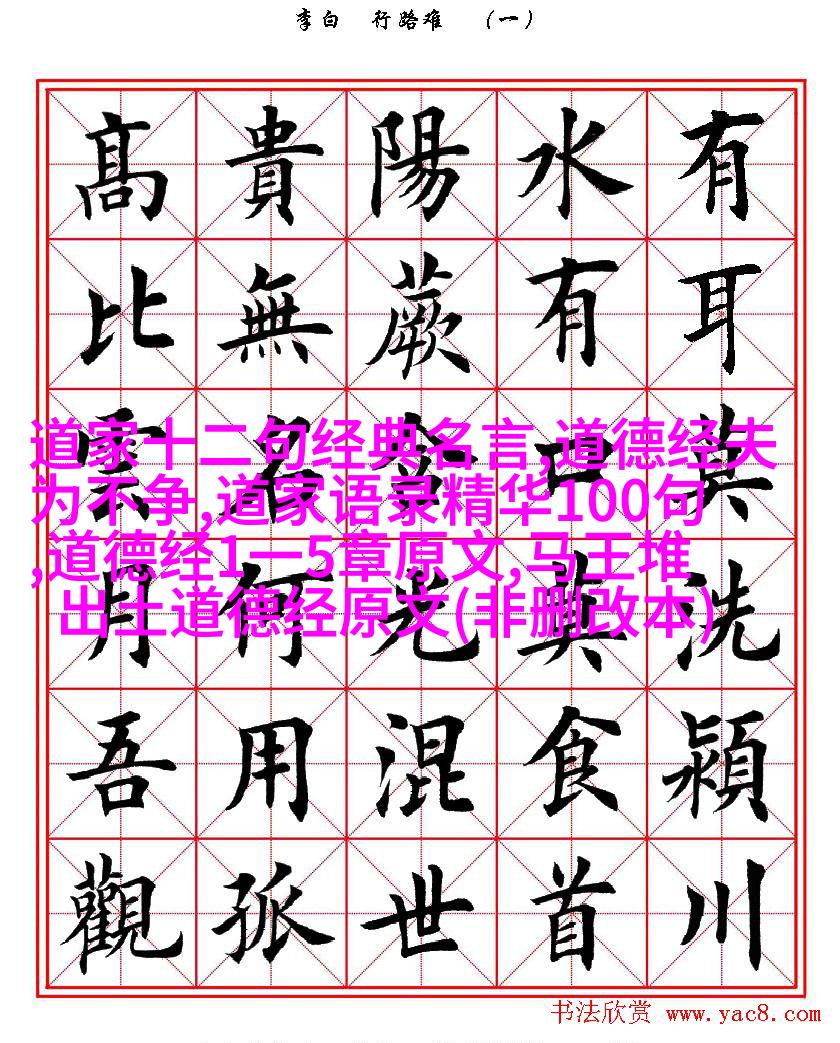 李白 行路难 （一）
有耳莫洗潁川
水有口莫食首
陽蕨含光混世
貴無名何用孤
髙比雲月吾觀
道家十二句经典名言,道德经夫
为不争,道家语录精华100句
,道德经1一5章原文,马王堆
出土道德经原文(非删改本)
书法欣赏 www.yac8.com